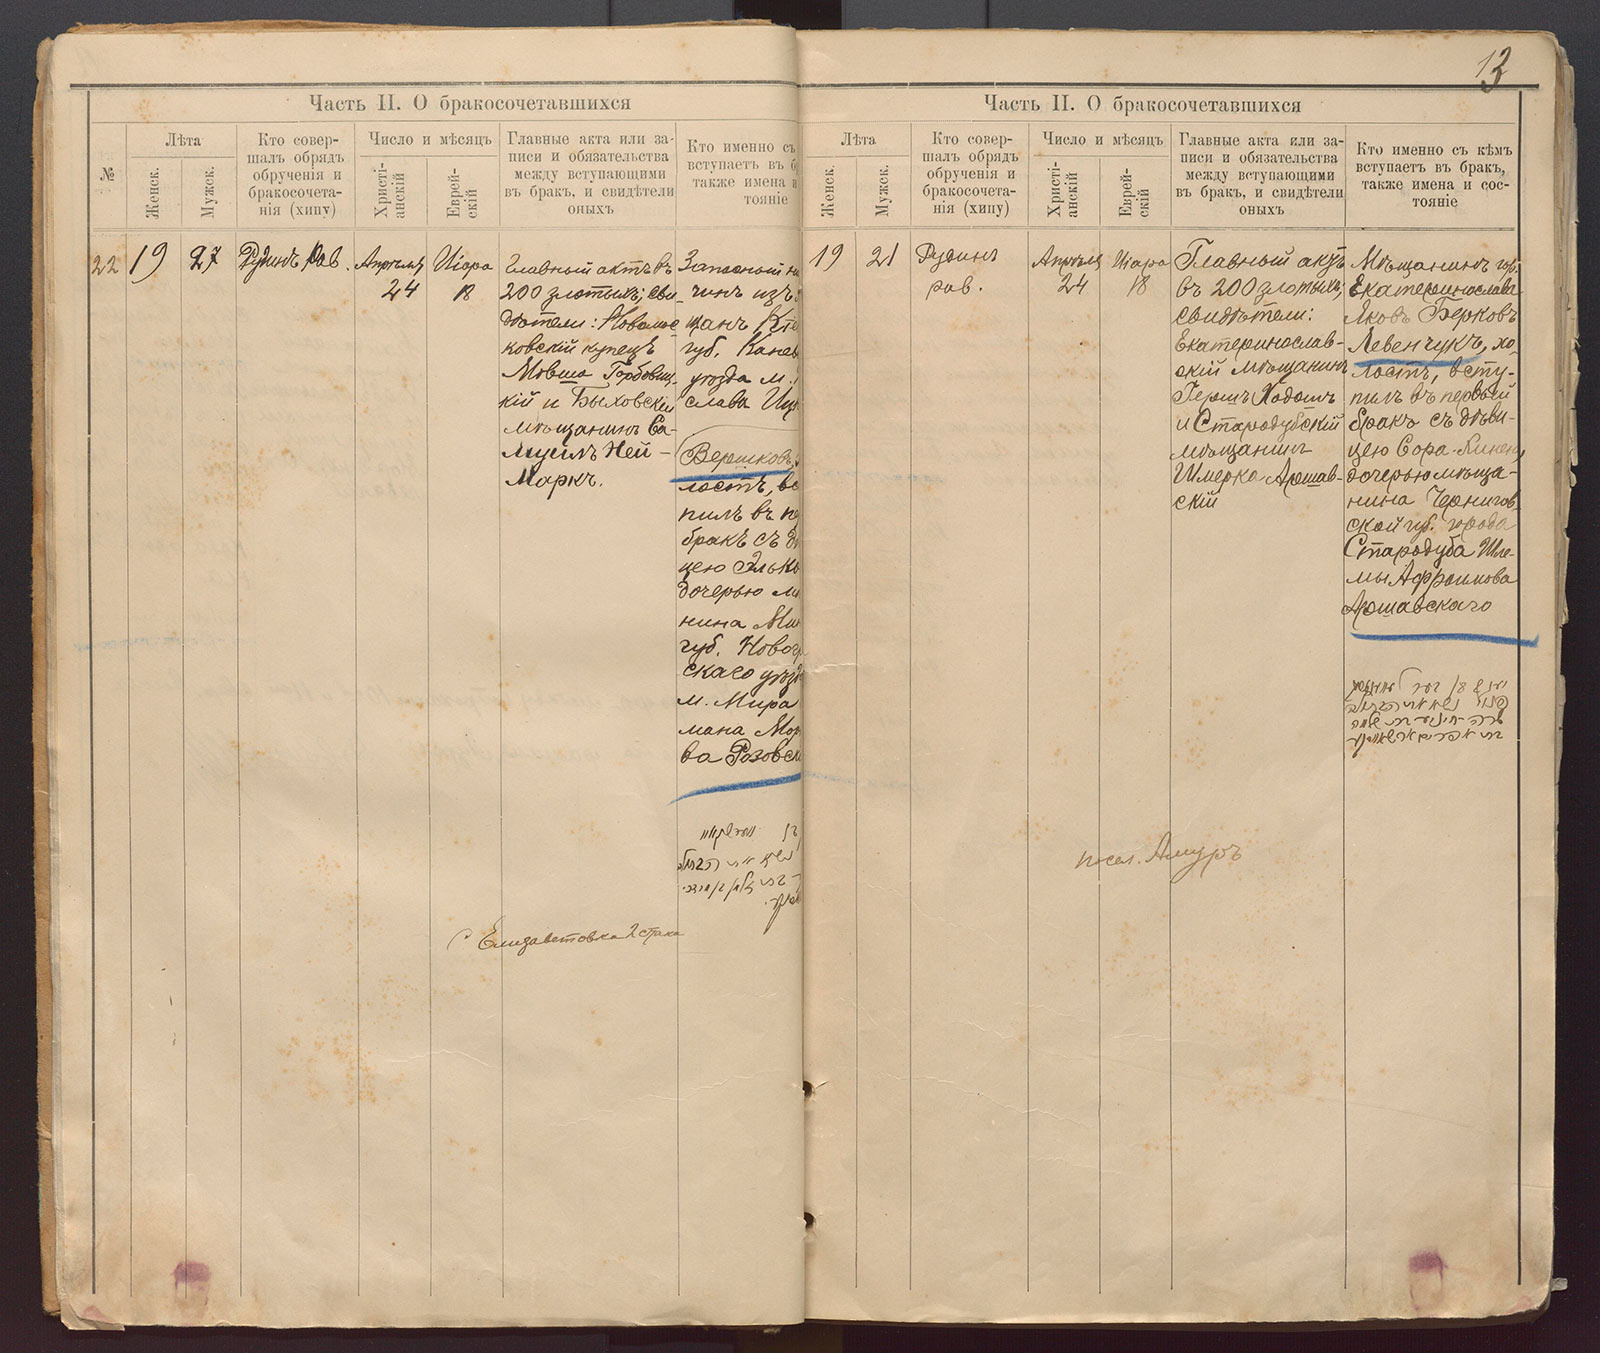 13
Часть II. О бракосочетавшихся
№
Лѣта
Женск.
Мужск.
Кто совер-
шалъ обрядъ
обрученія и
бракосочета-
нія (хипу)
Число и мѣсяцъ
Христі-
анскій
Еврей-
скій
Главные акта или за-
писи и обязательства
между вступающими
въ бракъ, и свидѣтели
оныхъ
Кто именно съ
вступаетъ въ б
также имена и
тояніе
22
19
27
Рудинъ Рав.
Апрѣля
24
Иіара
18
Главный актъ въ
200 злотыхъ; сви-
дѣтели:
ковскій купецъ
Мовша
кій и Быховскій
мѣщанинъ Са-
муилъ Ней-
маркъ.
Запасный
чинъ изъ
щанъ
губ. Канев
уѣзда м.
слава
Вершковъ,
лостъ, вс
пилъ въ пе
бракъ съ дѣ
цею Элько
дочерью мѣ
нина Мин
губ. Новогр
скаго уѣзд
м. Мира
мана Мор
ва Розовск
נשא את הבתולה
с Елизаветовка 2 стана
Часть II. О бракосочетавшихся
Лѣта
Женск.
Мужск.
Кто совер-
шалъ обрядъ
обрученія и
бракосочета-
нія (хипу)
Число и мѣсяцъ
Христі-
анскій
Еврей-
скій
Главные акта или за-
писи и обязательства
между вступающими
въ бракъ, и свидѣтели
оныхъ
Кто именно съ кѣмъ
вступаетъ въ бракъ,
также имена и сос-
тояніе
19
21
Рудинъ
рав.
Апрѣля
24
Иіара
18
Главный актъ
въ 200 злотыхъ;
свидѣтели:
Екатеринослав-
скій мѣщанинъ
Гершъ Ходошъ
и Стародубскій
мѣщанинъ
Шмерка Аршав-
скій
Мѣщанинъ гор.
Екатеринослава
Яковъ Берковъ
Левенчукъ, хо-
лостъ, всту-
пилъ въ первый
бракъ съ дѣви-
цею Сора-
дочерью мѣща-
нина Чернигов-
ской губ. города
Стародуба Шле-
мы Афроимова
Аршавскаго
נשא את הבתולה
שרה בת שלמה
посел. Амуръ